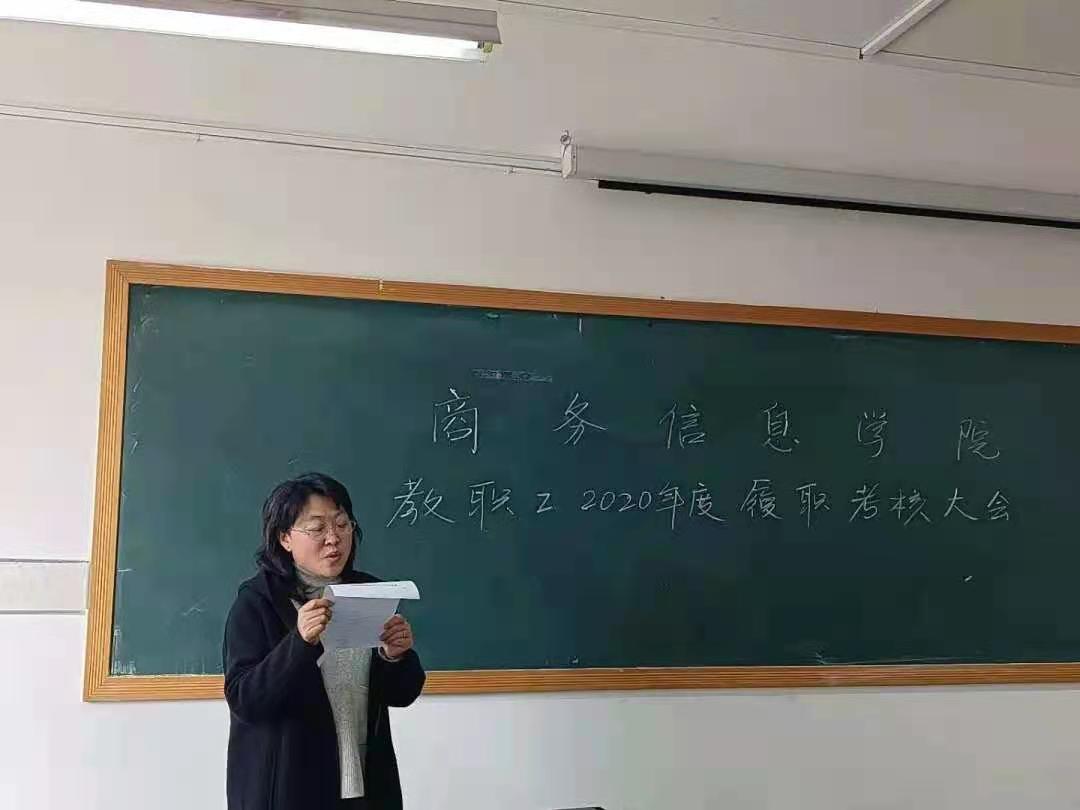 商务信息学院
教职工2020年度履职考核大会